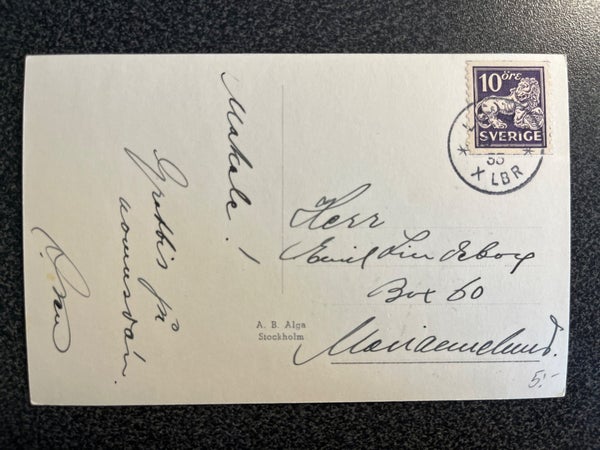 Makalc!
Grattis på
namnsdan.
10 öre
SVERIGE
* *
35
X LBR
Herr
Emil Lindeborg
Box 60
Mariannelund.
A. B. Alga
Stockholm
5:-